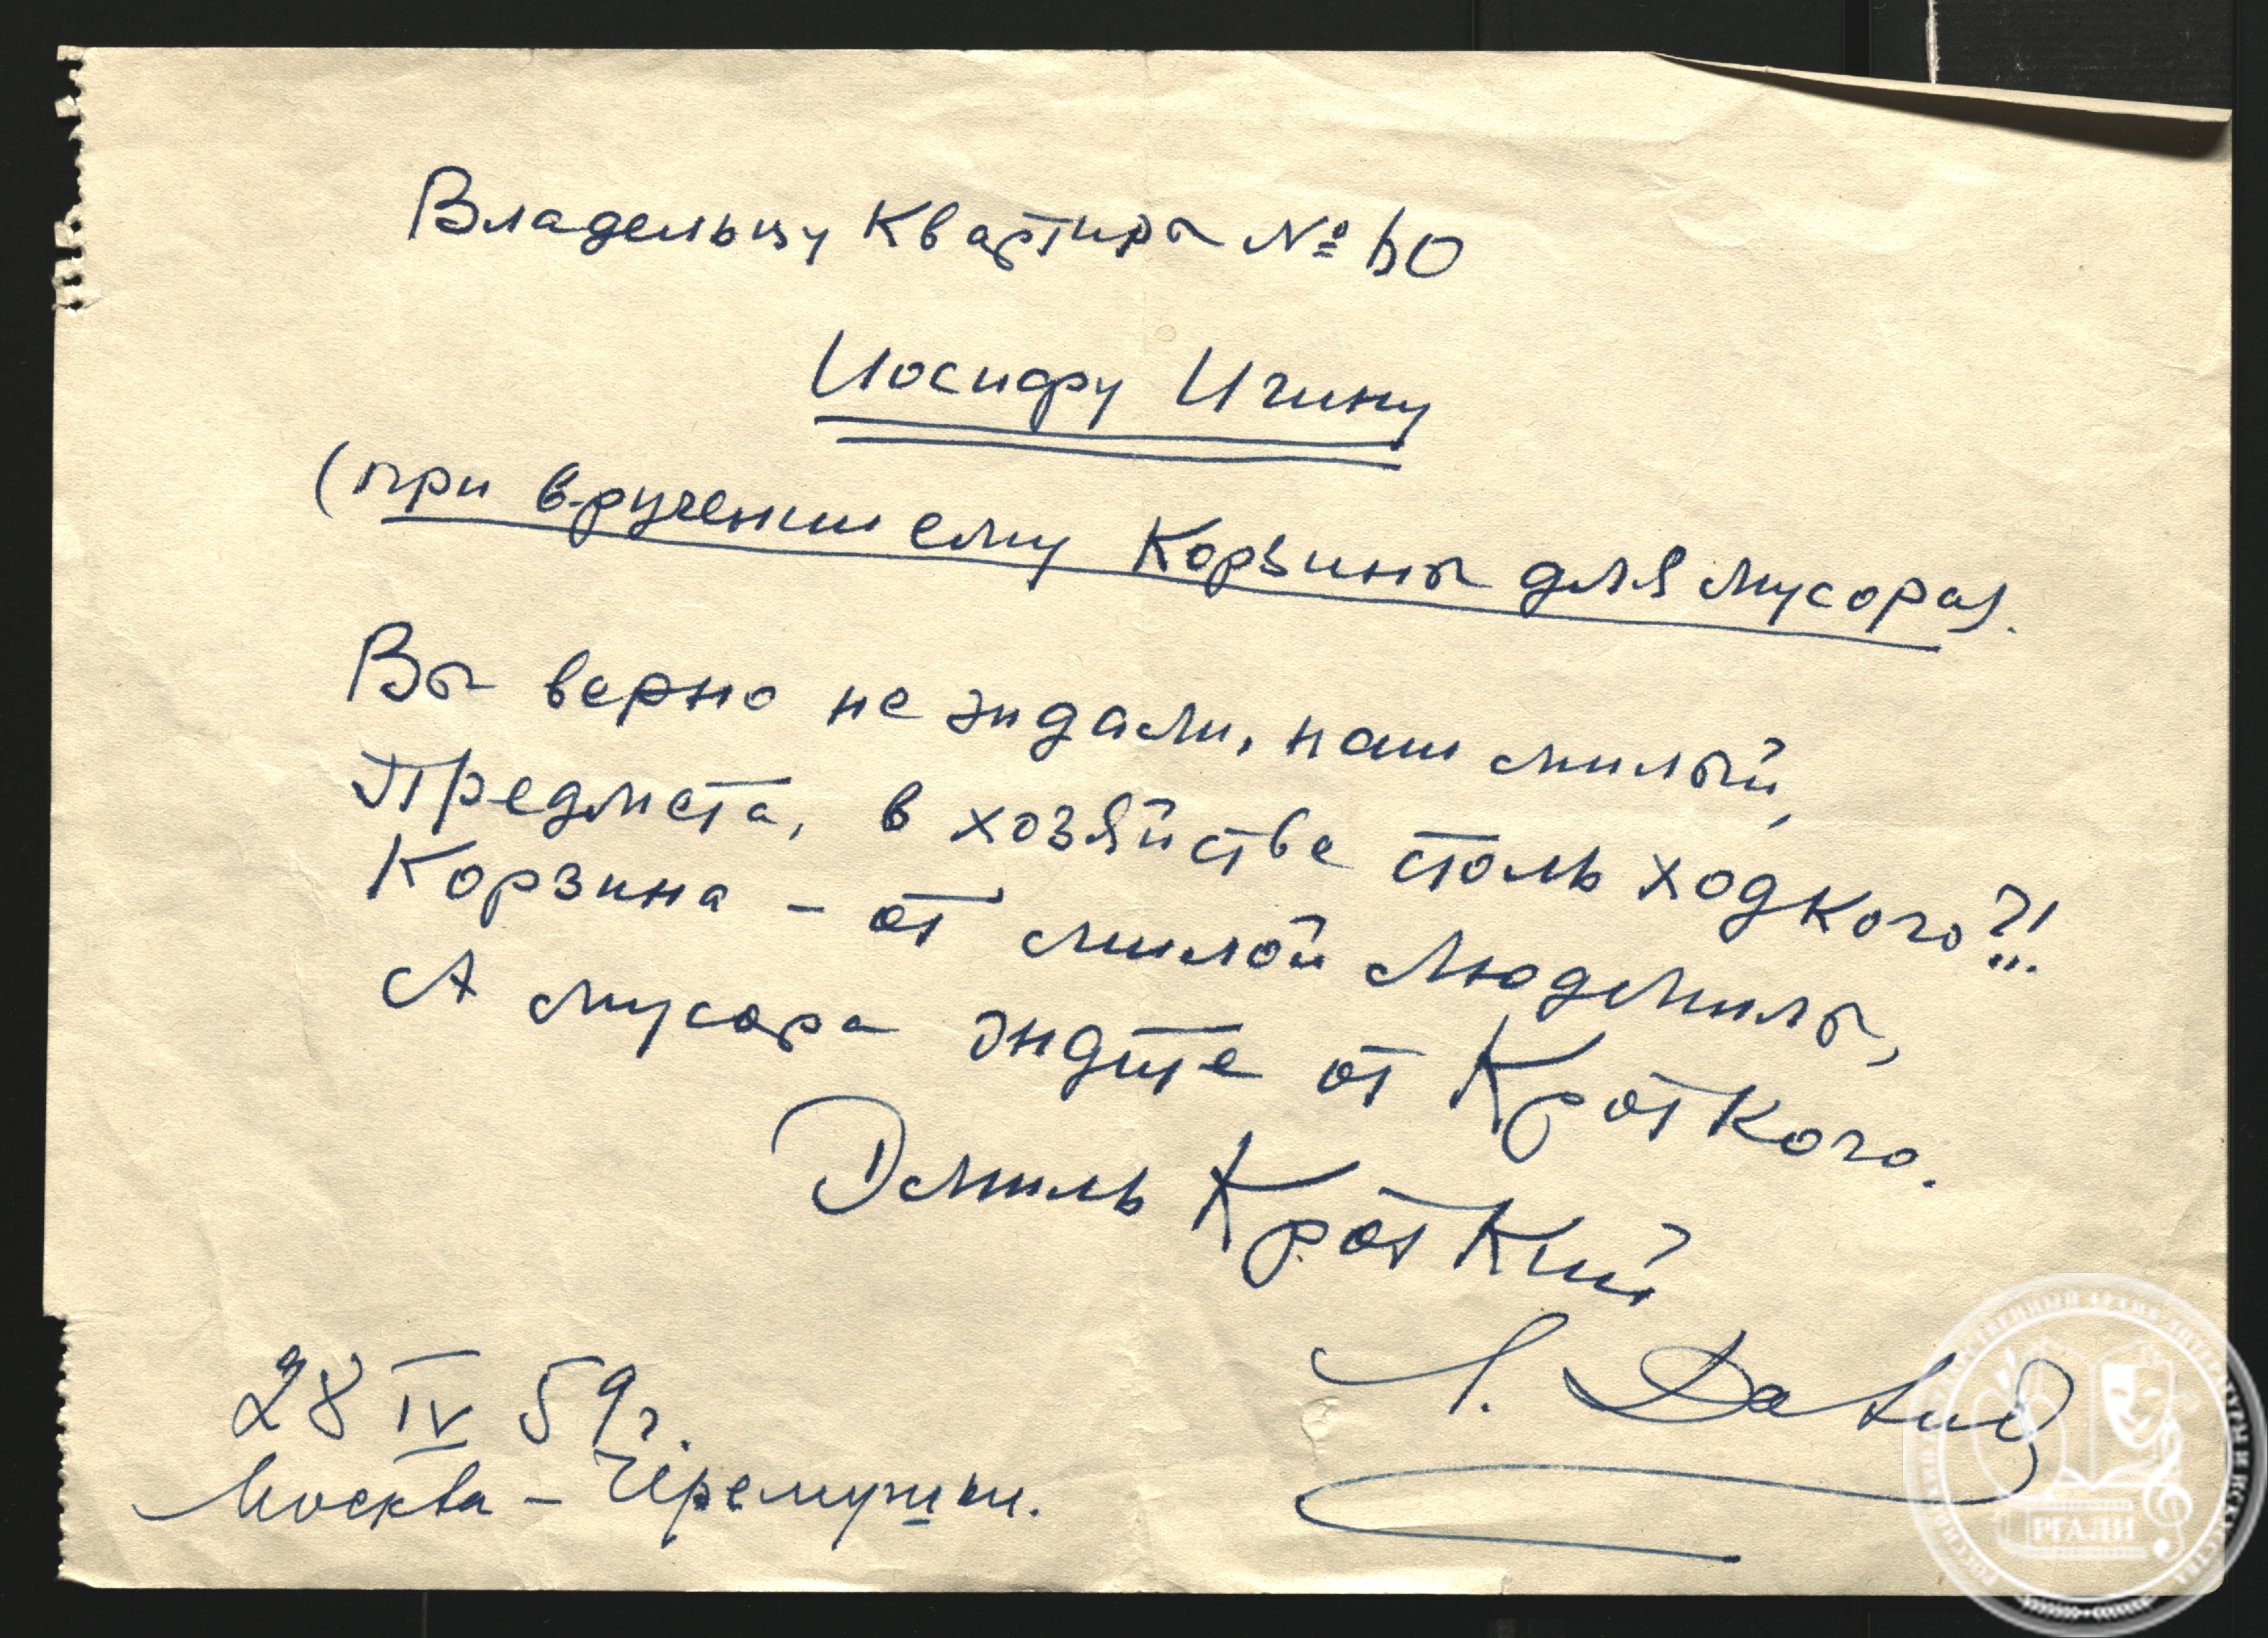 Владельцу квартиры № 60
Иосифу Игину
(при вручении ему корзины для мусора).
Вы верно не ждали, наш милый,
Предмета, в хозяйстве столь ходкого?!!
Корзина – от милой Людмилы,
А мусора ждите от Кроткого.
Эмиль Кроткий
Л. Давид
28 IV 59 г.
Москва – Черемушки.
РГАЛИ